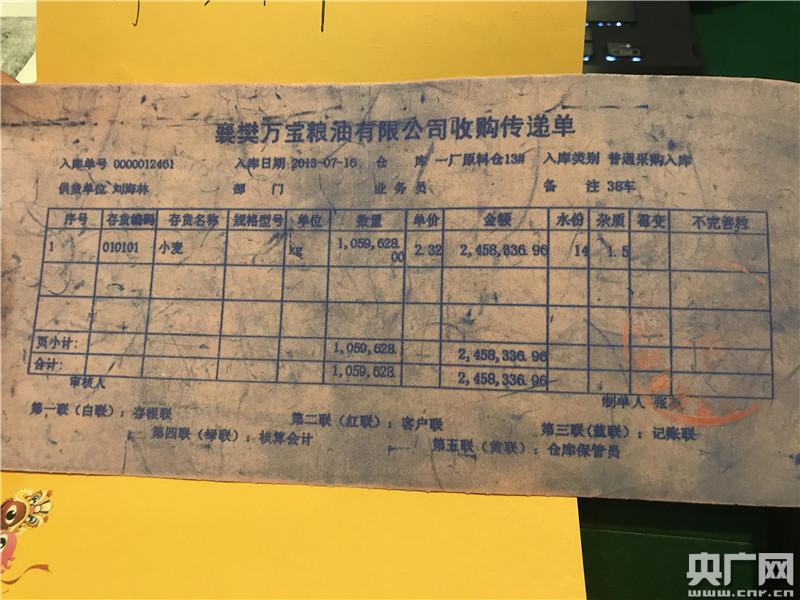 襄樊万宝粮油有限公司收购传递单
入库单号 0000012461 入库日期 2013-07-16 仓 库 一厂原料仓13# 入库类别 普通采购入库
供货单位 刘海林 部 门 业 务 员 备 注 38车
序号 存货编码 存货名称 规格型号 单位 数量 单价 金额 水份 杂质 霉变 不完善粒
1 010101 小麦 kg 1,059,628.00 2.32 2,458,336.96 14 1.5
页小计: 1,059,628. 2,458,336.96
合计: 1,059,628. 2,458,336.96
审核人 制单人 张
第一联（白联）：存根联 第二联（红联）：客户联 第三联(蓝联）：记账联
第四联（绿联）：核算会计 第五联（黄联）：仓库保管员
央广网
www.cnr.cn